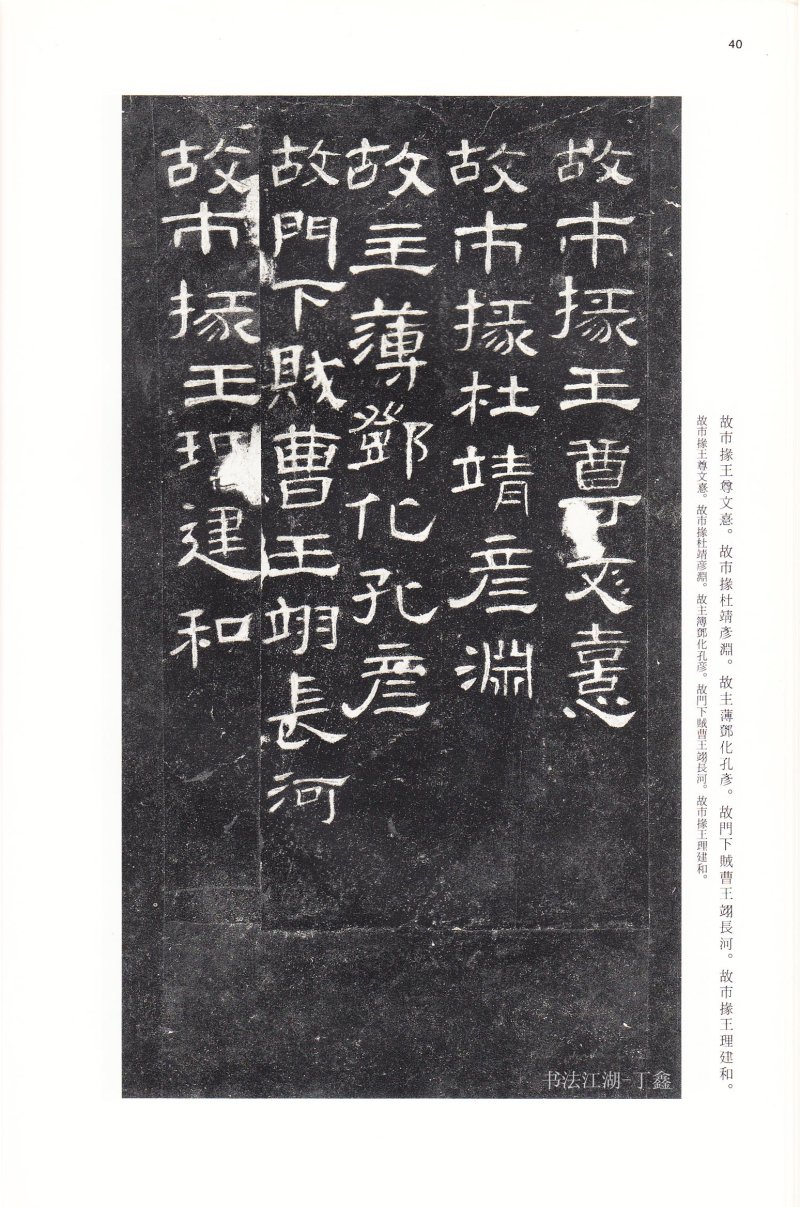 40
故市掾王尊文憙。故市掾杜靖彥淵。故主薄鄧化孔彥。故門下賊曹王翊長河。故市掾王理建和。
故市掾王尊文憙。故市掾杜靖彥淵。故主簿鄧化孔彥。故門下賊曹王翊長河。故市掾王理建和。
故市掾王尊文憙
故市掾杜靖彥淵
故主薄鄧化孔彥
故門下賊曹王翊長河
故市掾王理建和
书法江湖-丁鑫